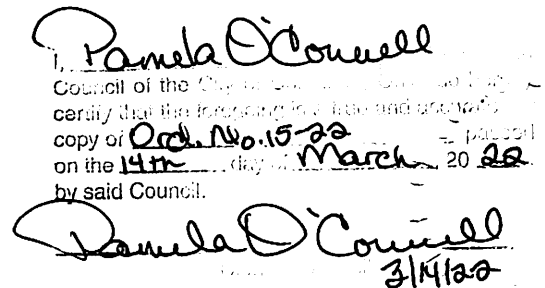 I, Pamela O'Connell
Council of the City of
certify that the foregoing is a true and
copy of Ord. No. 15-22 passed
on the 14th day of March 20 22
by said Council.
Pamela O'Connell
3/14/22